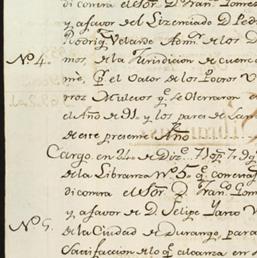 di contra el Sõr. D. Fran.co Tomes
y, afavor del Lizenciado D. Pedr
Rodrig.z Velarde Adm.or de los D
Nº 4. mos de la Jurisdicion de cuenca
me, p.r el Valor de los Potros
rros Muletos q.e se
el Año de 91. y los pares de
de este presente Año
Cargo, en 24 de Diz.e
de la Libranza Nº 5 q.e
di contra el Sõr. D. Fran.co Tom
y, a favor de D. Felipe Yarro V
Nº 5. de la Ciudad de Durango, para
Satisfaccion de lo q.e alcanza en